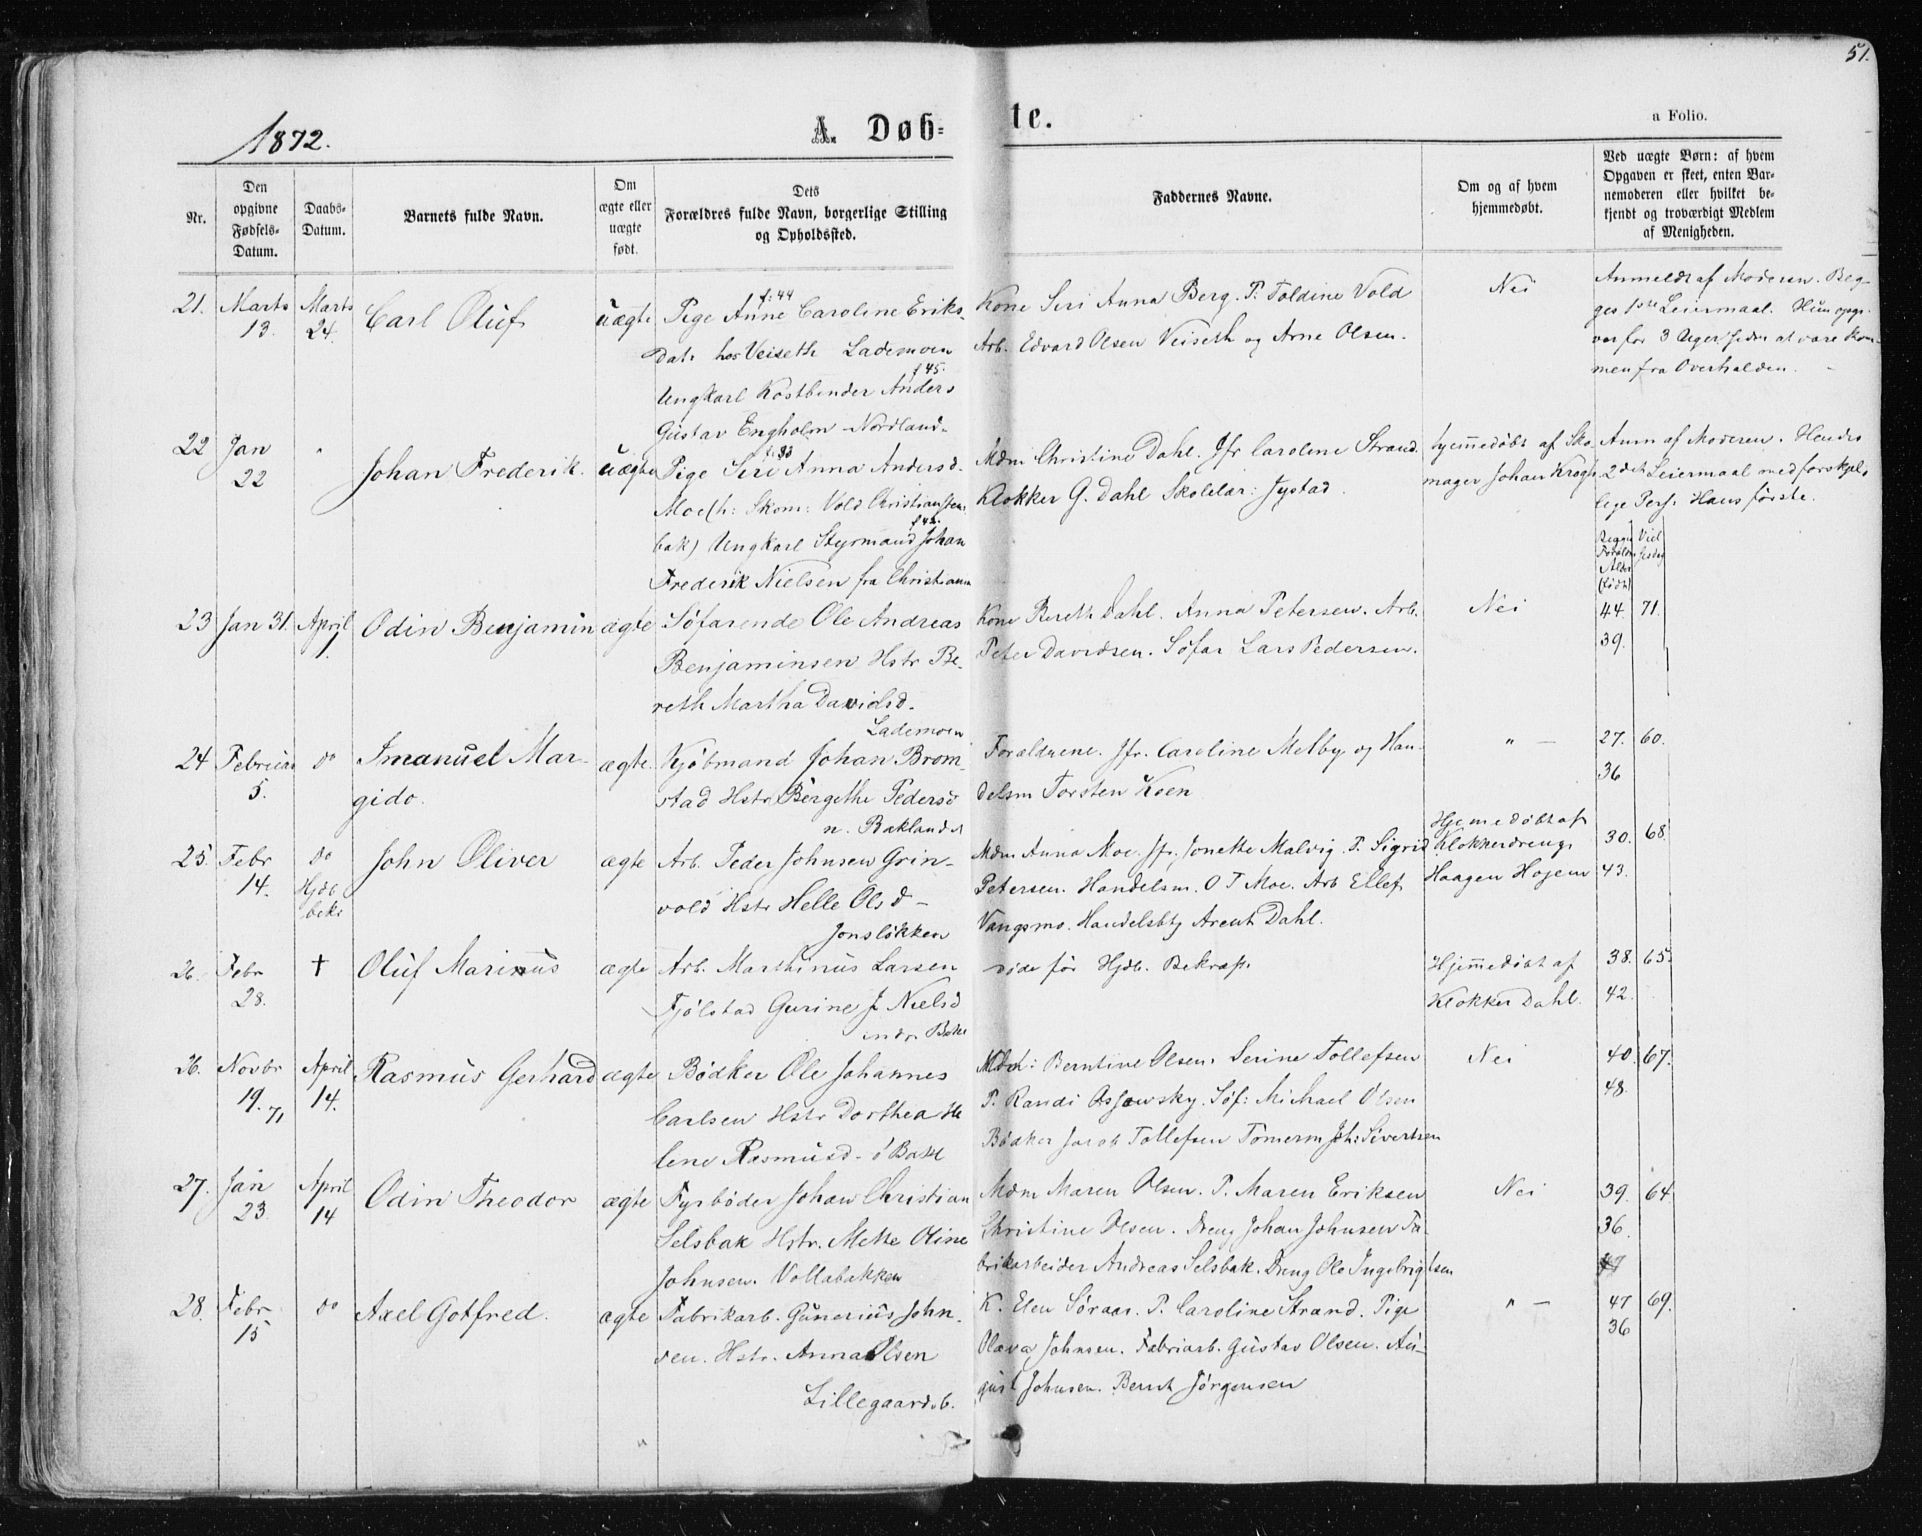 51.
1872.
A. Døb- te.
a Folio.
Nr.
Den opgivne Fødsels-Datum.
Daabs-Datum.
Barnets fulde Navn.
Om ægte eller uægte født.
Dets Forældres fulde Navn, borgerlige Stilling og Opholdssted.
Faddernes Navne.
Om og af hvem hjemmedøbt.
Ved uægte Børn: af hvem Opgaven er skeet, enten Barnemoderen eller hvilket bekjendt og troværdigt Medlem af Menigheden.
21. Marts 13. Marts 24. Carl Oluf uægte
f: 44
Pige Anne Caroline Eriks-
Datr hos Veiseth Lademoen
f 45.
Ungkarl Kostbinder Anders
Gustav Engholm Nordland.
Kone Siri Anna Berg. P. Toldine Vold
Arb. Edvard Olsen Veiseth og Arne Olsen.
Nei
Anmeldt af Moderen. Beg-
ges 1ste Leiermaal. Hun opgi-
ver for 3 Uger siden at være kom-
men fra Overhalden.
22 Jan 22 " Johan Frederik. uægte
f. 33
Pige Siri Anna Andersd.
Moe (h: Skom: Vold Christianssen:
f 42.
bak) Ungkarl Styrmand Johan
Frederik Nielsen fra Christiania
Mdm Christine Dahl. Jfr Caroline Strand.
Klokker G. Dahl Skolelær: Jystad.
hjemmedøbt af Sko
mager Johan Krogh
Anm af Moderen. Hendes
2det Leiermaal med forskjel-
lige Pers. Hans første.
Begge Forældres Alder (født)
Viel sesdag
23 Jan 31. April 1 Odin Benjamin ægte
Søfarende Ole Andreas
Benjaminsen Hstr Be-
reth Martha Davidsd.
Lademoen
Kone Bereth Dahl. Anna Petersen. Arb.
Peter Davidsen. Søfar Lars Pedersen.
Nei
44. 71.
39.
24 Februar 5. do Imanuel Mar-
gido. ægte.
Kjøbmand Johan Brom-
stad Hstr Bergethe Pedersd
n. Baklandet
Forældrene. Jfr. Caroline Melby og Han-
delsm Torsten Koen
" —
27. 60.
36
25. Febr 14. do Hjdb bekr John Oliver ægte
Arb. Peder Johnsen Grin-
vold Hstr Helle Olsd –
Jonsløkken
Mdm Anna Moe. Jfr. Jonette Malvig. P. Sigrid
Petersen. Handelsm. O T Moe. Arb Ellef
Vangsmo. Handelsbtj Arent Dahl.
Hjemmedøbt af
Klokkerdreng
Haagen Hojem
30. 68.
43.
26. Febr 28. † Oluf Marinus ægte
Arb. Marthinus Larsen
Fjølstad Gurine J Nielsd
indr. Bakl
døde før Hjdb. Bekræft.
Hjemmedøbt af
Klokker Dahl.
38. 65.
42.
26. Novbr 19. 71 April 14. Rasmus Gerhard ægte
Bødker Ole Johannes
Carlsen Hstr Dorthea He
lene Rasmusd – ø Bakl
Mdm: Berntine Olsen. Serine Tollefsen
P. Randi Ossowsky. Søf: Michael Olsen
Bødker Jacob Tollefsen Tømerm Joh: Sivertsen
Nei
40. 67.
48.
27. Jan 23. April 14 Odin Theodor ægte
Fyrbøder Johan Christian
Selsbak Hstr. Mette Oline
Johnsen. Vollabakken
Mdm Maren Olsen. P. Maren Eriksen
Christine Olsen. Dreng Johan Johnsen Fa
brikarbeider Andreas Selsbak. Dreng Ole Ingebrigtsen
Nei
39. 64.
36.
28. Febr 15 do Axel Gotfred. ægte
Fabrikarb. Gunerius John-
sen. Hstr. Anna Olsen
Lillegaardsb.
K. Elen Søraas. P. Caroline Strand. Pige
Olava Johnsen. Fabriarb. Gustav Olsen. Au-
gust Johnsen. Bernt Jørgensen
" —
47 69.
36